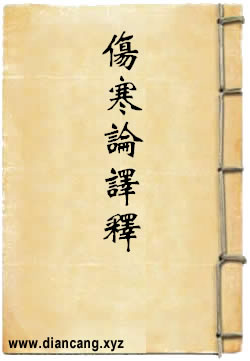 傷寒論譯釋
www.diancang.xyz